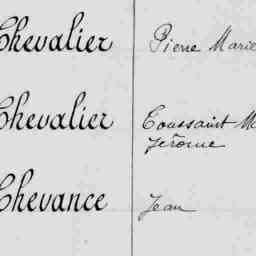 Chevalier Pierre Marie
Chevalier Toussaint M
Jérome
Chevance Jean